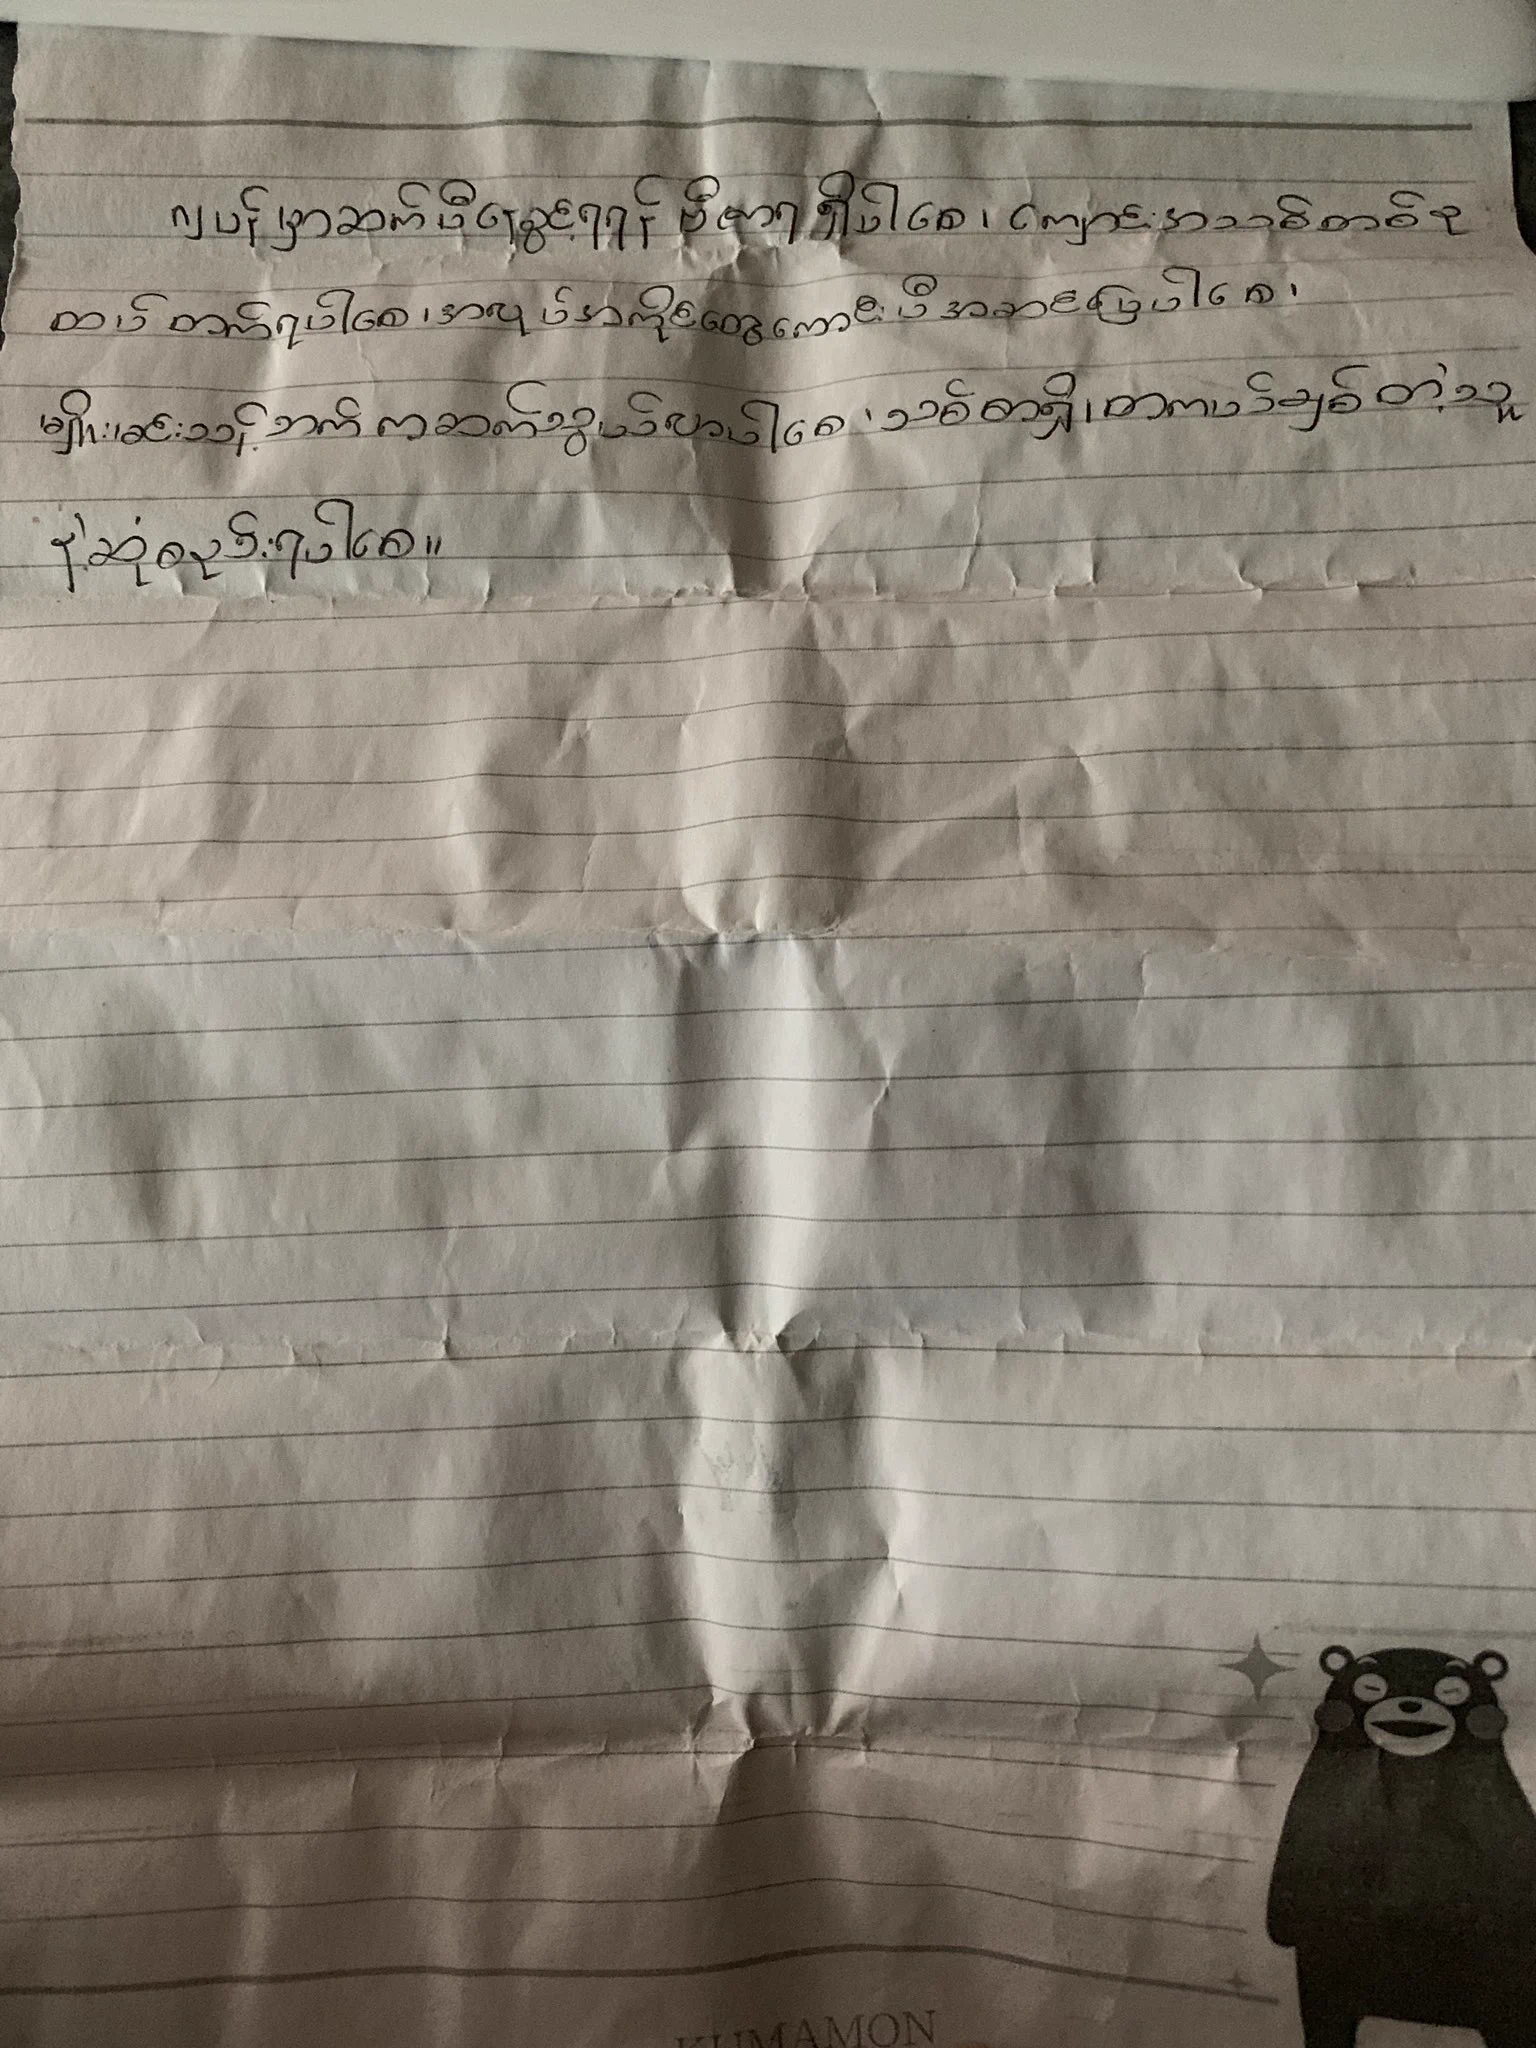 ဂျပန်မှာဆက်ပြီးနေခွင့်ရရန် ဗီဇာရရှိပါစေ၊ ကျောင်းအသစ်တစ်ခု
ထပ်တက်ရပါစေ၊ အလုပ်အကိုင်တွေကောင်းပြီးအဆင်ပြေပါစေ၊
မျိုးမင်းသန့်ဘက်ကဆက်သွယ်လာပါစေ၊ သစ္စာရှိ၊ တကယ်ချစ်တဲ့သူ
နဲ့ဆုံစည်းရပါစေ။
KUMAMON